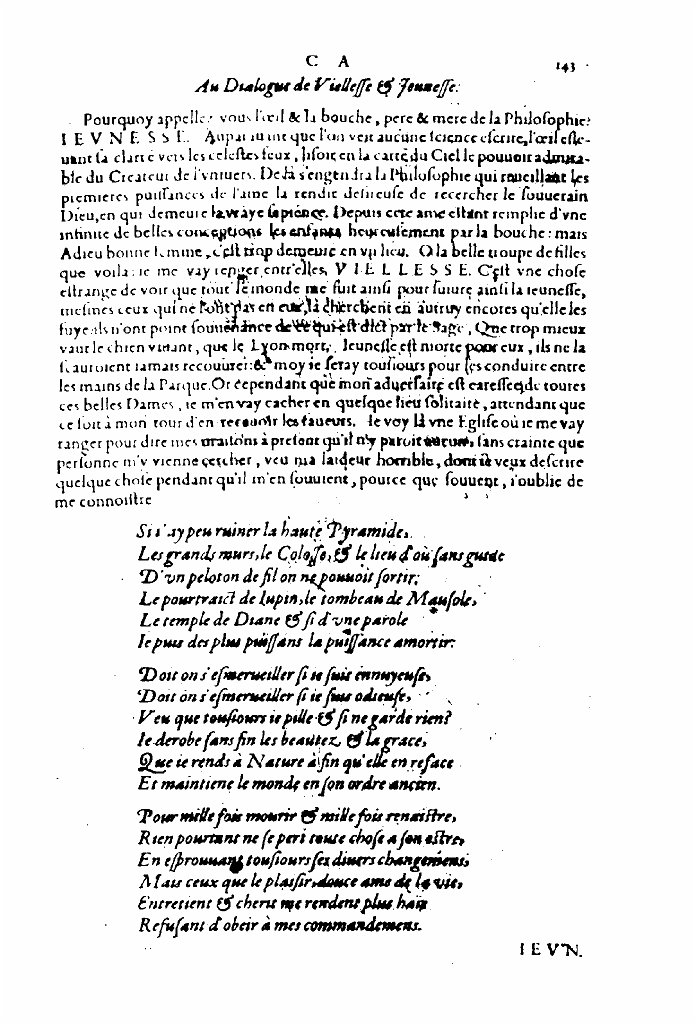 C A 143
Au Dialogue de Viellesse & Jeunesse.
Pourquoy appellez vous l'œil & la bouche, pere & mere de la Philosophie?
IEVNESSE. Auparauant que l'on veit aucune science escrite, l'œil esle-
uant sa clarté vers les celestes feux, lisoit en la carte du Ciel le pouuoir admira-
ble du Createur de l'vniuers. De là s'engendra la Philosophie qui recueillant les
premieres puissances de l'ame la rendit desireuse de recercher le souuerain
Dieu, en qui demeure la vraye sapience. Depuis ceste ame estant remplie d'vne
infinité de belles conceptions les enfanta heureusement par la bouche: mais
Adieu bonne femme, c'est trop demeuré en vn lieu. O la belle troupe de filles
que voila: ie me vay renger entr'elles, VIELLESSE. C'est vne chose
estrange de voir que tout le monde me fuit ainsi pour suiure ainsi la ieunesse,
mesmes ceux qui ne l'ont pas en eux, la cherchent en autruy encores qu'elle les
fuye: ils n'ont point souuenance de ce qui est dict par le Sage, Que trop mieux
vaut le chien viuant, que le Lyon mort, Jeunesse est morte pour eux, ils ne la
sçauroient iamais recouurer: & moy ie seray tousiours pour les conduire entre
les mains de la Parque. Or cependant que mon aduersaire est caressee de toutes
ces belles Dames, ie m'en vay cacher en quelque lieu solitaire, attendant que
ce soit à mon tour d'en receuoir les faueurs. Ie voy là vne Eglise où ie me vay
ranger pour dire mes oraisons à present qu'il n'y paroit aucun, sans crainte que
personne m'y vienne cercher, veu ma laideur horrible, dont ie veux descrire
quelque chose pendant qu'il m'en souuient, pource que souuent, i'oublie de
me connoistre
Si i'ay peu ruiner la haute Pyramide,
Les grands murs, le Colosse, & le lieu d'où sans guide
D'vn peloton de fil on ne pouuoit sortir;
Le pourtraict de Iupin, le tombeau de Mausole,
Le temple de Diane & si d'vne parole
Ie puis des plus puissans la puissance amortir:
Doit on s'esmerueiller si ie suis ennuyeuse,
Doit on s'esmerueiller si ie suis odieuse,
Veu que tousiours ie pille & si ne garde rien?
Ie derobe sans fin les beautez, & la grace,
Que ie rends à Nature afin qu'elle en reface
Et maintiene le monde en son ordre ancien.
Pour mille fois mourir & mille fois renaistre,
Rien pourtant ne se pert toute chose a son estre,
En esprouuant tousiours ses diuers changemens,
Mais ceux que le plaisir, douce ame de la vie,
Entretient & cherit me rendent plus haïe
Refusant d'obeir à mes commandemens.
IEVN.